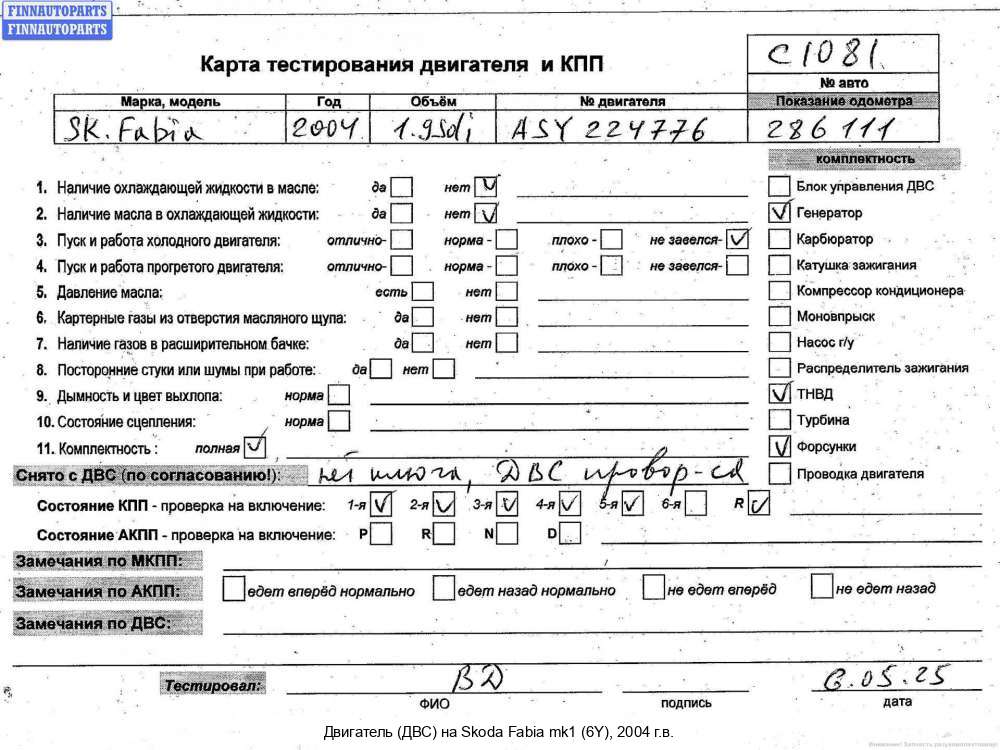 FINNAUTOPARTS
FINNAUTOPARTS
Карта тестирования двигателя и КПП
C1081
№ авто
Марка, модель Год Объём № двигателя Показание одометра
SK. Fabia 2004 1.9Sdi ASY 224776 286111
комплектность
1. Наличие охлаждающей жидкости в масле: да нет Блок управления ДВС
2. Наличие масла в охлаждающей жидкости: да нет Генератор
3. Пуск и работа холодного двигателя: отлично- норма - плохо - не завелся- Карбюратор
4. Пуск и работа прогретого двигателя: отлично- норма - плохо - не завелся- Катушка зажигания
5. Давление масла: есть нет Компрессор кондиционера
6. Картерные газы из отверстия масляного щупа: да нет Моновпрыск
7. Наличие газов в расширительном бачке: да нет Насос г/у
8. Посторонние стуки или шумы при работе: да нет Распределитель зажигания
9. Дымность и цвет выхлопа: норма ТНВД
10. Состояние сцепления: норма Турбина
11. Комплектность : полная Форсунки
Снято с ДВС (по согласованию!): нет ключа, ДВС провор-ся Проводка двигателя
Состояние КПП - проверка на включение: 1-я 2-я 3-я 4-я 5-я 6-я R
Состояние АКПП - проверка на включение: P R N D
Замечания по МКПП:
Замечания по АКПП: едет вперёд нормально едет назад нормально не едет вперёд не едет назад
Замечания по ДВС:
Тестировал: ВД .05.25
ФИО подпись дата
Двигатель (ДВС) на Skoda Fabia mk1 (6Y), 2004 г.в.